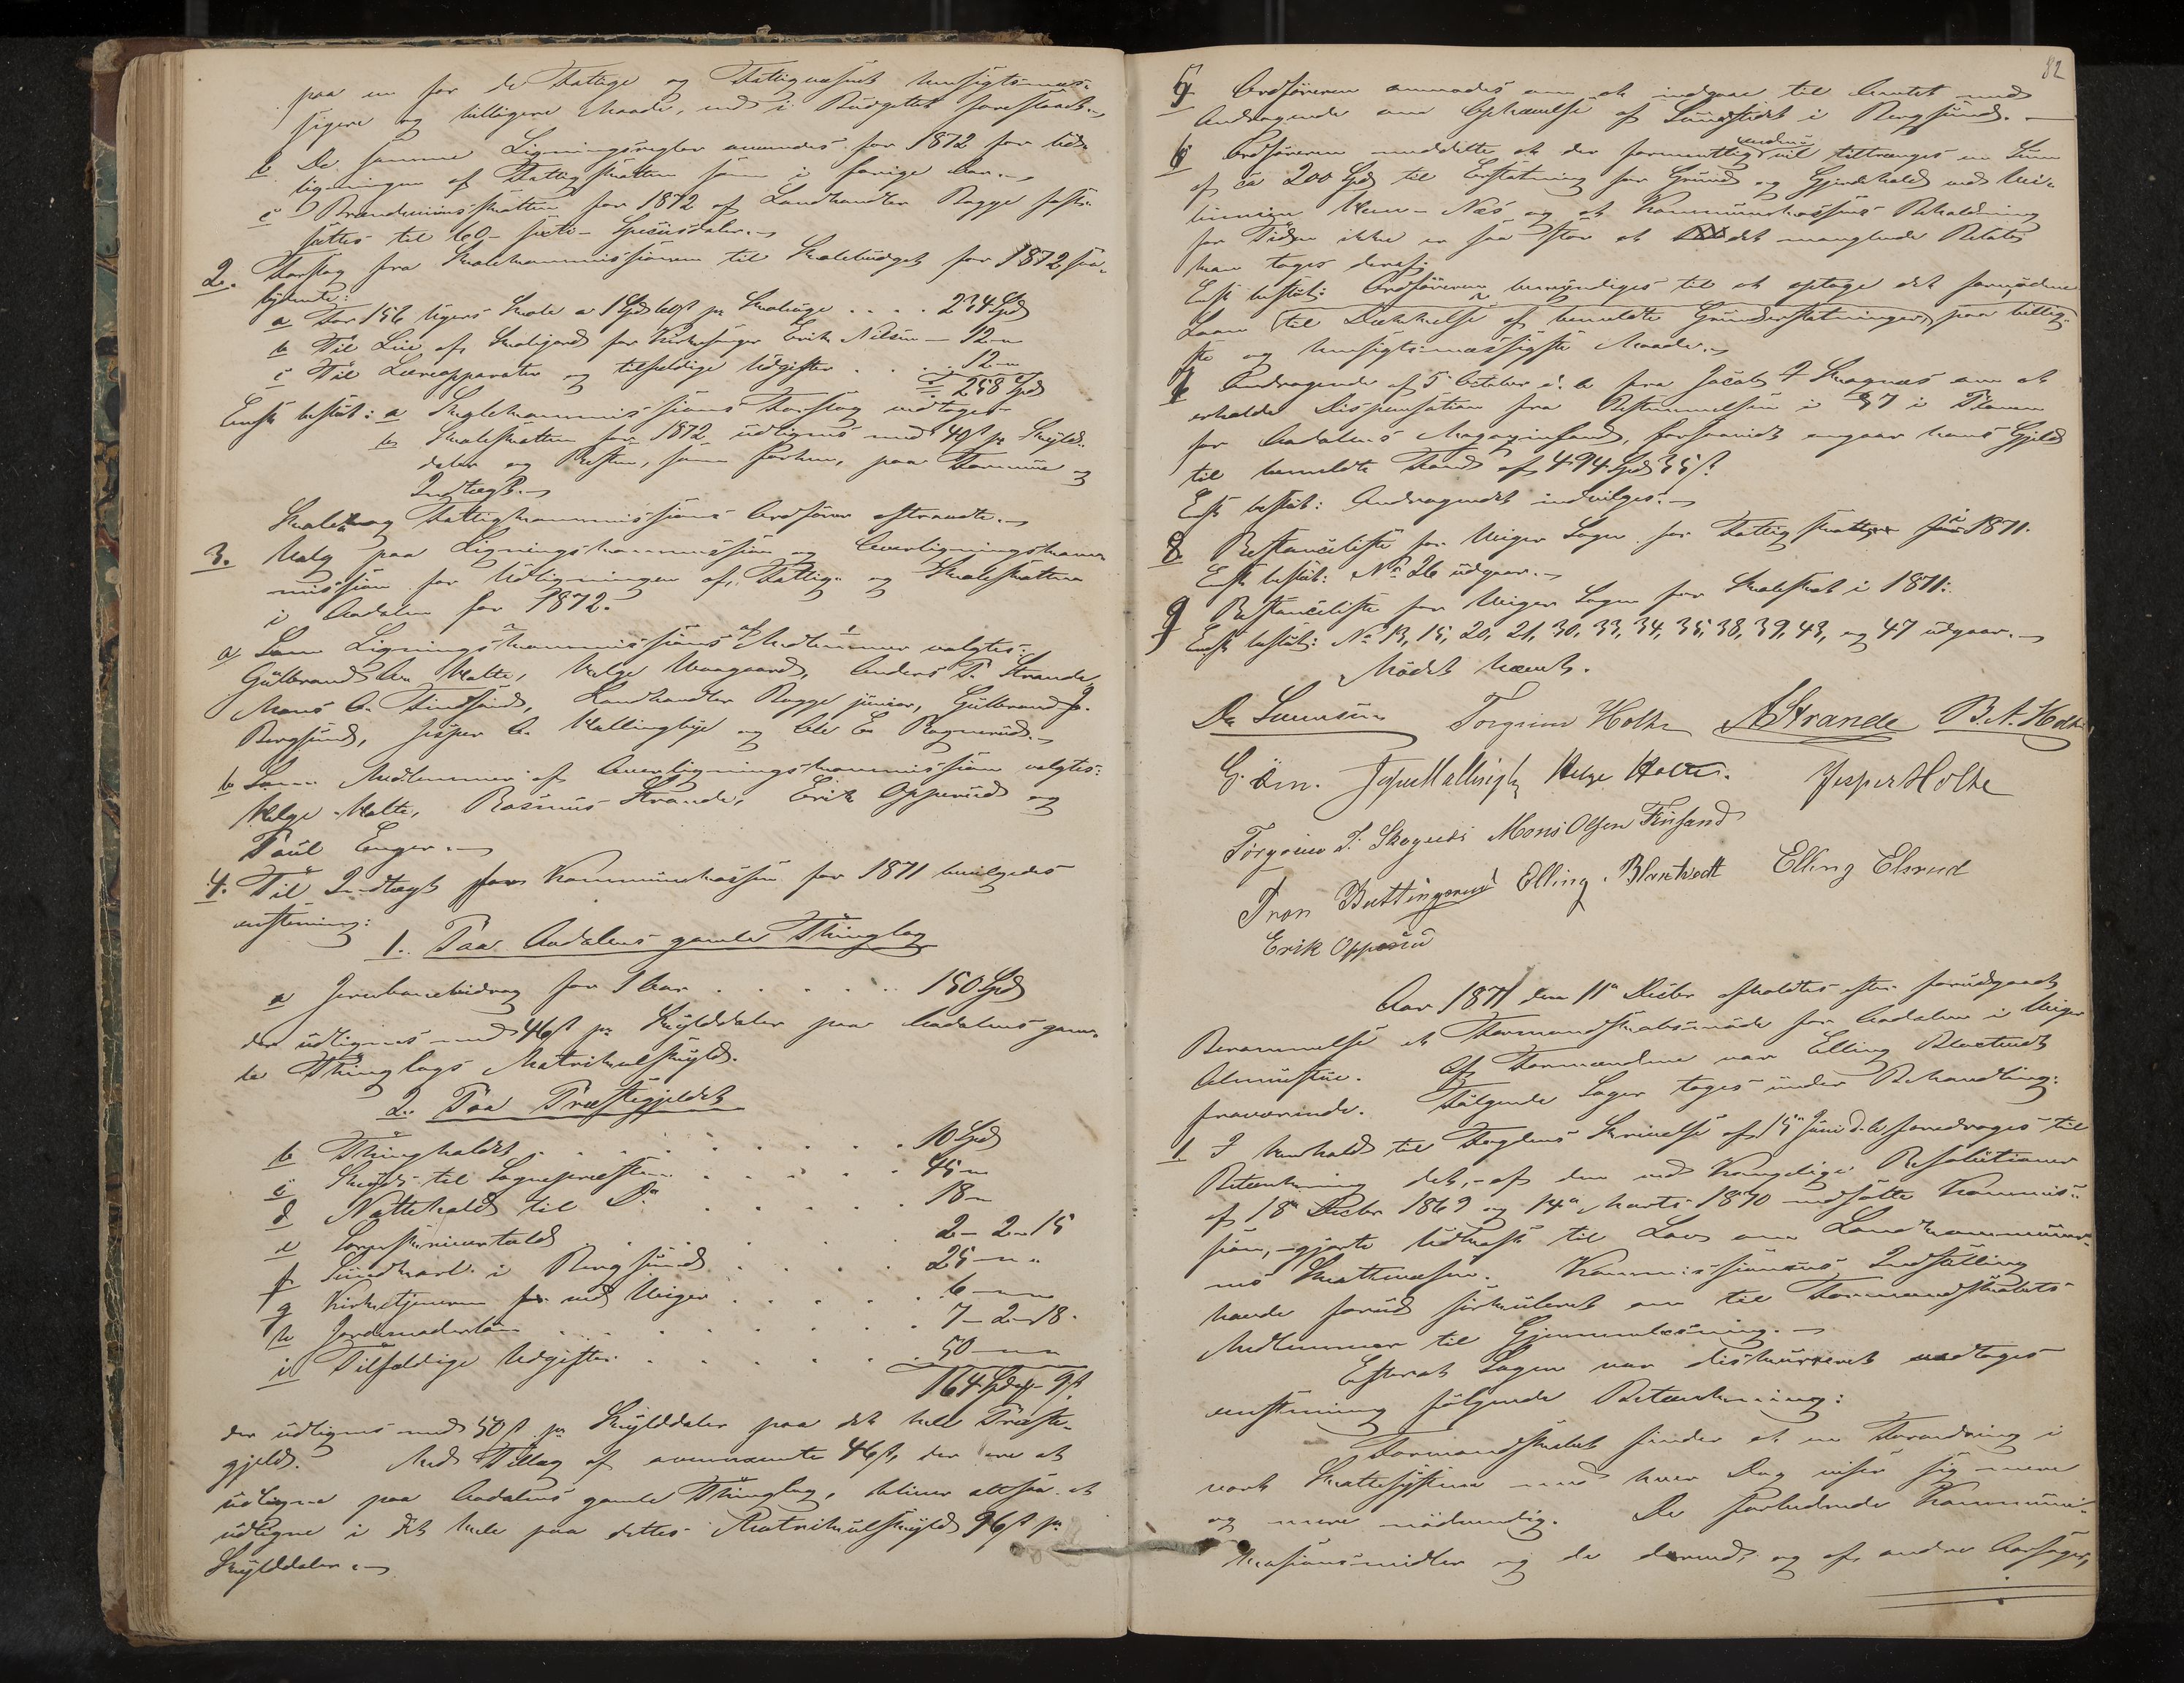 paa en for de Fattige og Fattigvæsenet hensigtsmæs-
sigere og billigere Maade, end i Budgettet foreslaaet.
b De samme Ligningsregler anvendes for 1872 for Ud-
ligningen af Fattigskatten som i forige Aar.
c Brændeviinsskatten for 1872 af Landhandler Bagge fast-
sættes til 60 - sexti - Speciesdaler.
2. Forslag fra Skolekommissionen til Skolebudget for 1872 saa-
lydende:
a For 156 Ugers Skole a 1 Spd 60 s pr Skoleuge .... 234 Spd
b Til Leie af Skolejord for Kirkesanger Erik Nilsen - 12 -
c Til Læreapparater og tilfældige Udgifter .... 12 -
258 Spd
Enst. beslut: a Skolekommissions Forslag vedtages
b Skoleskatten for 1872 udlignes med 40 s pr Skyld-
daler og Resten, som forhen, paa Formue og
Indtægt.
Skole- og Fattigkommissions Ordfører aftraadte.
3. Valg paa Ligningskommission og Overligningskom-
mission for Udligningen af Fattig- og Skoleskatten
i Aadalen for 1872.
a Som Ligningskommissions Medlemmer valgtes:
Gulbrand An Holte, Helge Vaagaard, Anders T. Strande,
Mons O. Findsand, Landhandler Bagge junior, Gulbrand J.
Bergsund, Jesper O. Hallingbye og Ole E. Ragnerud.
b Som Medlemmer af Overligningskommission valgtes:
Helge Holte, Rasmus Strande, Erik Opperud og
Poul Enger.
4. Til Indtægt for Kommunekassen for 1871 bevilgedes
enstemmig:
1. Paa Aadalens gamle Thinglag
a Jernbanebidrag for 1 Aar ...... 150 Spd
der udlignes med 46 s pr Skylddaler paa Aadalens gam-
le Thinglags Matrikulskyld.
2. Paa Præstegjeldet
b Thingholdet ...... 10 Spd
c Skyds til Sognepræsten ...... 45 -
d Nattehold til Do ...... 18 -
e Sorenskrivertold ...... 2 - 2 - 15
f Sundkarl i Bergsund ...... 25 - "
g Kirketjeneren ved Viger ...... 6 -
h Jordemoderløn ...... 7 - 2 - 18.
i Tilfældige Udgifter ...... 50 -
164 Spd - 9 s
der udlignes med 50 s pr Skylddaler paa det hele Præste-
gjeld. Med Tillæg af ovennævnte 46 s, der ere at
udligne paa Aadalens gamle Thinglag, bliver altsaa at
udligne i Alt hele paa dettes Matrikulskyld 96 s pr
Skylddaler.
82
5 Ordføreren anmodes om at indgaae til Amtet med
Andragende om Ophævelse af Sundstedet i Bergsund.
6 Ordføreren meddelte at der formentlig endnu vil tiltrænges en Sum
af ca 200 Spd til Erstatning for Grund og Gjerdehold ved Vei-
linien Hen - Næs og at Kommunekassens Beholdning
for Tiden ikke er saa stor at det manglende Beløb
kan tages deraf.
Enst. beslut: Ordføreren bemyndiges til at optage det fornødne
Laan til Dækkelse af bemeldte Grunderstatninger paa billig-
ste og hensigtsmæssigste Maade.
7 Andragende af 5 October d. A. fra Jacob T Skagnæs om at
erholde Dispensation fra Bestemmelsen i § 7 i Planen
for Aadalens Magazinfond, forsaavidt angaar hans Gjeld
til bemeldte Fond af 494 Spd 35 s.
Enst. beslut: Andragendet indvilges.
8 Restanceliste for Viger Sogn for Fattigskatten i 1871.
Enst. beslut: No 26 udgaar.
9 Restanceliste for Viger Sogn for Skoleskat i 1871:
Enst. beslut: No 13, 15, 20, 21, 30, 33, 34, 35, 38, 39, 43, og 47 udgaar.
Mødet hævet.
Torgrim Holte AStrande B. A. Holte
Helge Holte. Jesper Holte
Torgrim T. Skagnæs Mons Olsen Finsand
Tron Buttingsrud Elling Blaktvedt Elling Elsrud
Erik Opperud
Aar 1871 den 11te Decbr afholdtes efter forudgaaet
Berammelse et Formandskabsmøde for Aadalen i Viger
Almuestue. Af Formændene var Elling Blaktvedt
fraværende. Følgende Sager toges under Behandling:
1 I Henhold til Fogdens Skrivelse af 15de Juni d. A. foredrages til
Betænkning det, - af den ved Kongelige Resolutioner
af 18de Decbr 1869 og 14de Marts 1870 nedsatte Kommis-
sion, - gjorte Udkast til Lov om Landkommuner-
nes Skattevæsen. Kommissionens Indstilling
havde forud sirkuleret om til Formandskabets
Medlemmer til Gjennemlæsning.
Efterat Sagen var diskuteret vedtoges
enstemmig følgende Betænkning:
Formandskabet finder at en Forandring i
vort Skattesystem med hver Dag viser sig mere
og mere nødvendig. De forbedrede Kommuni-
kasionsmidler og de derved, og af andre Aarsager,